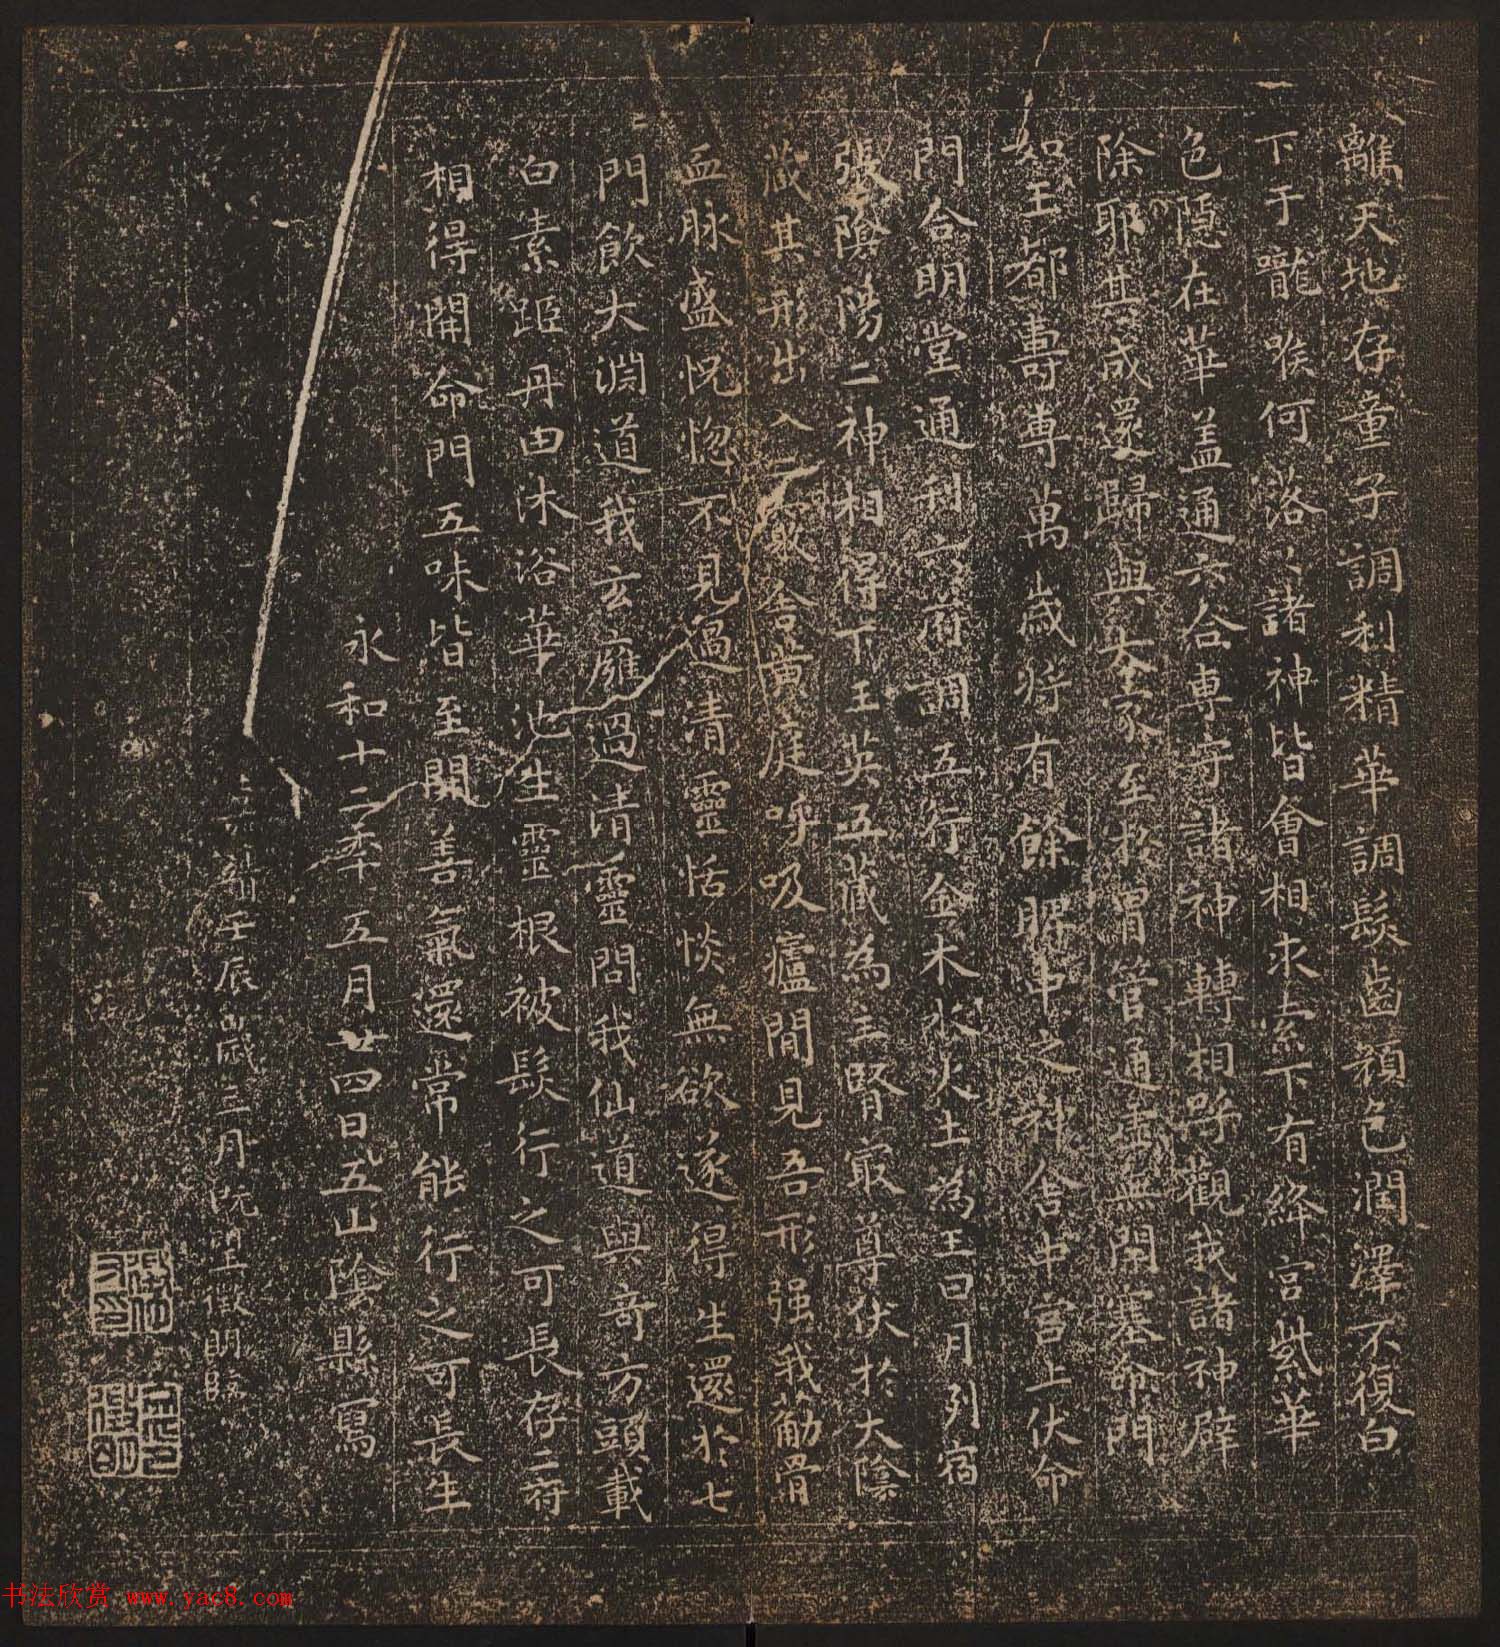 離天地存童子調利精華調髮齒顏色潤澤不復白
下于嚨喉何落〻諸神皆會相求索下有絳宮紫華
色隱在華盖通六合專守諸神轉相呼觀我諸神辟
除耶其成還歸與大家至於胃管通虛無閉塞命門
如王都壽專萬歲將有餘脾中之神舍中宮上伏命
門合明堂通利六府調五行金木水火土為王日月列宿
張陰陽二神相得下玉英五藏為主腎㝡尊伏於大陰
藏其形出入二竅舍黃庭呼吸廬間見吾形强我筋骨
血脉盛怳惚不見過清靈恬惔無欲遂得生還於七
門飲大淵道我玄廱過清靈問我仙道與奇方頭載
白素距丹田沐浴華池生靈根被髮行之可長存二府
相得開命門五味皆至開善氣還常能行之可長生
永和十二秊五月廿四日五山陰縣寫
壬辰歲三月既望徵明臨
書法欣赏 www.yac8.com